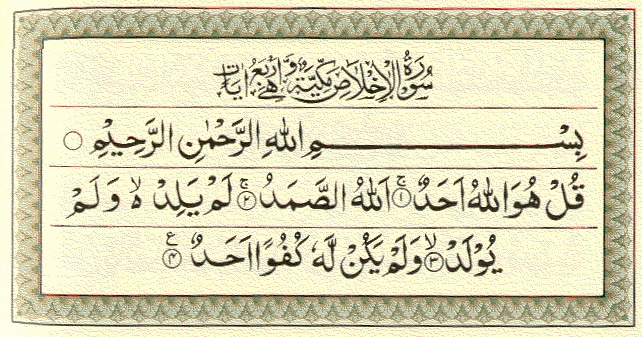 سُوْرَةُ الْاِخْلَاصِ مَكِّيَّةٌ وَّهِيَ اَرْبَعُ اٰيَاتٍ
بِسْمِ اللهِ الرَّحْمٰنِ الرَّحِيْمِ ○
قُلْ هُوَ اللهُ اَحَدٌ ۚ ﴿۱﴾ اَللهُ الصَّمَدُ ۚ ﴿۲﴾ لَمْ يَلِدْ ۙ وَلَمْ
يُوْلَدْ ۙ ﴿۳﴾ وَلَمْ يَكُنْ لَّهٗ كُفُوًا اَحَدٌ ﴿۴﴾ ع